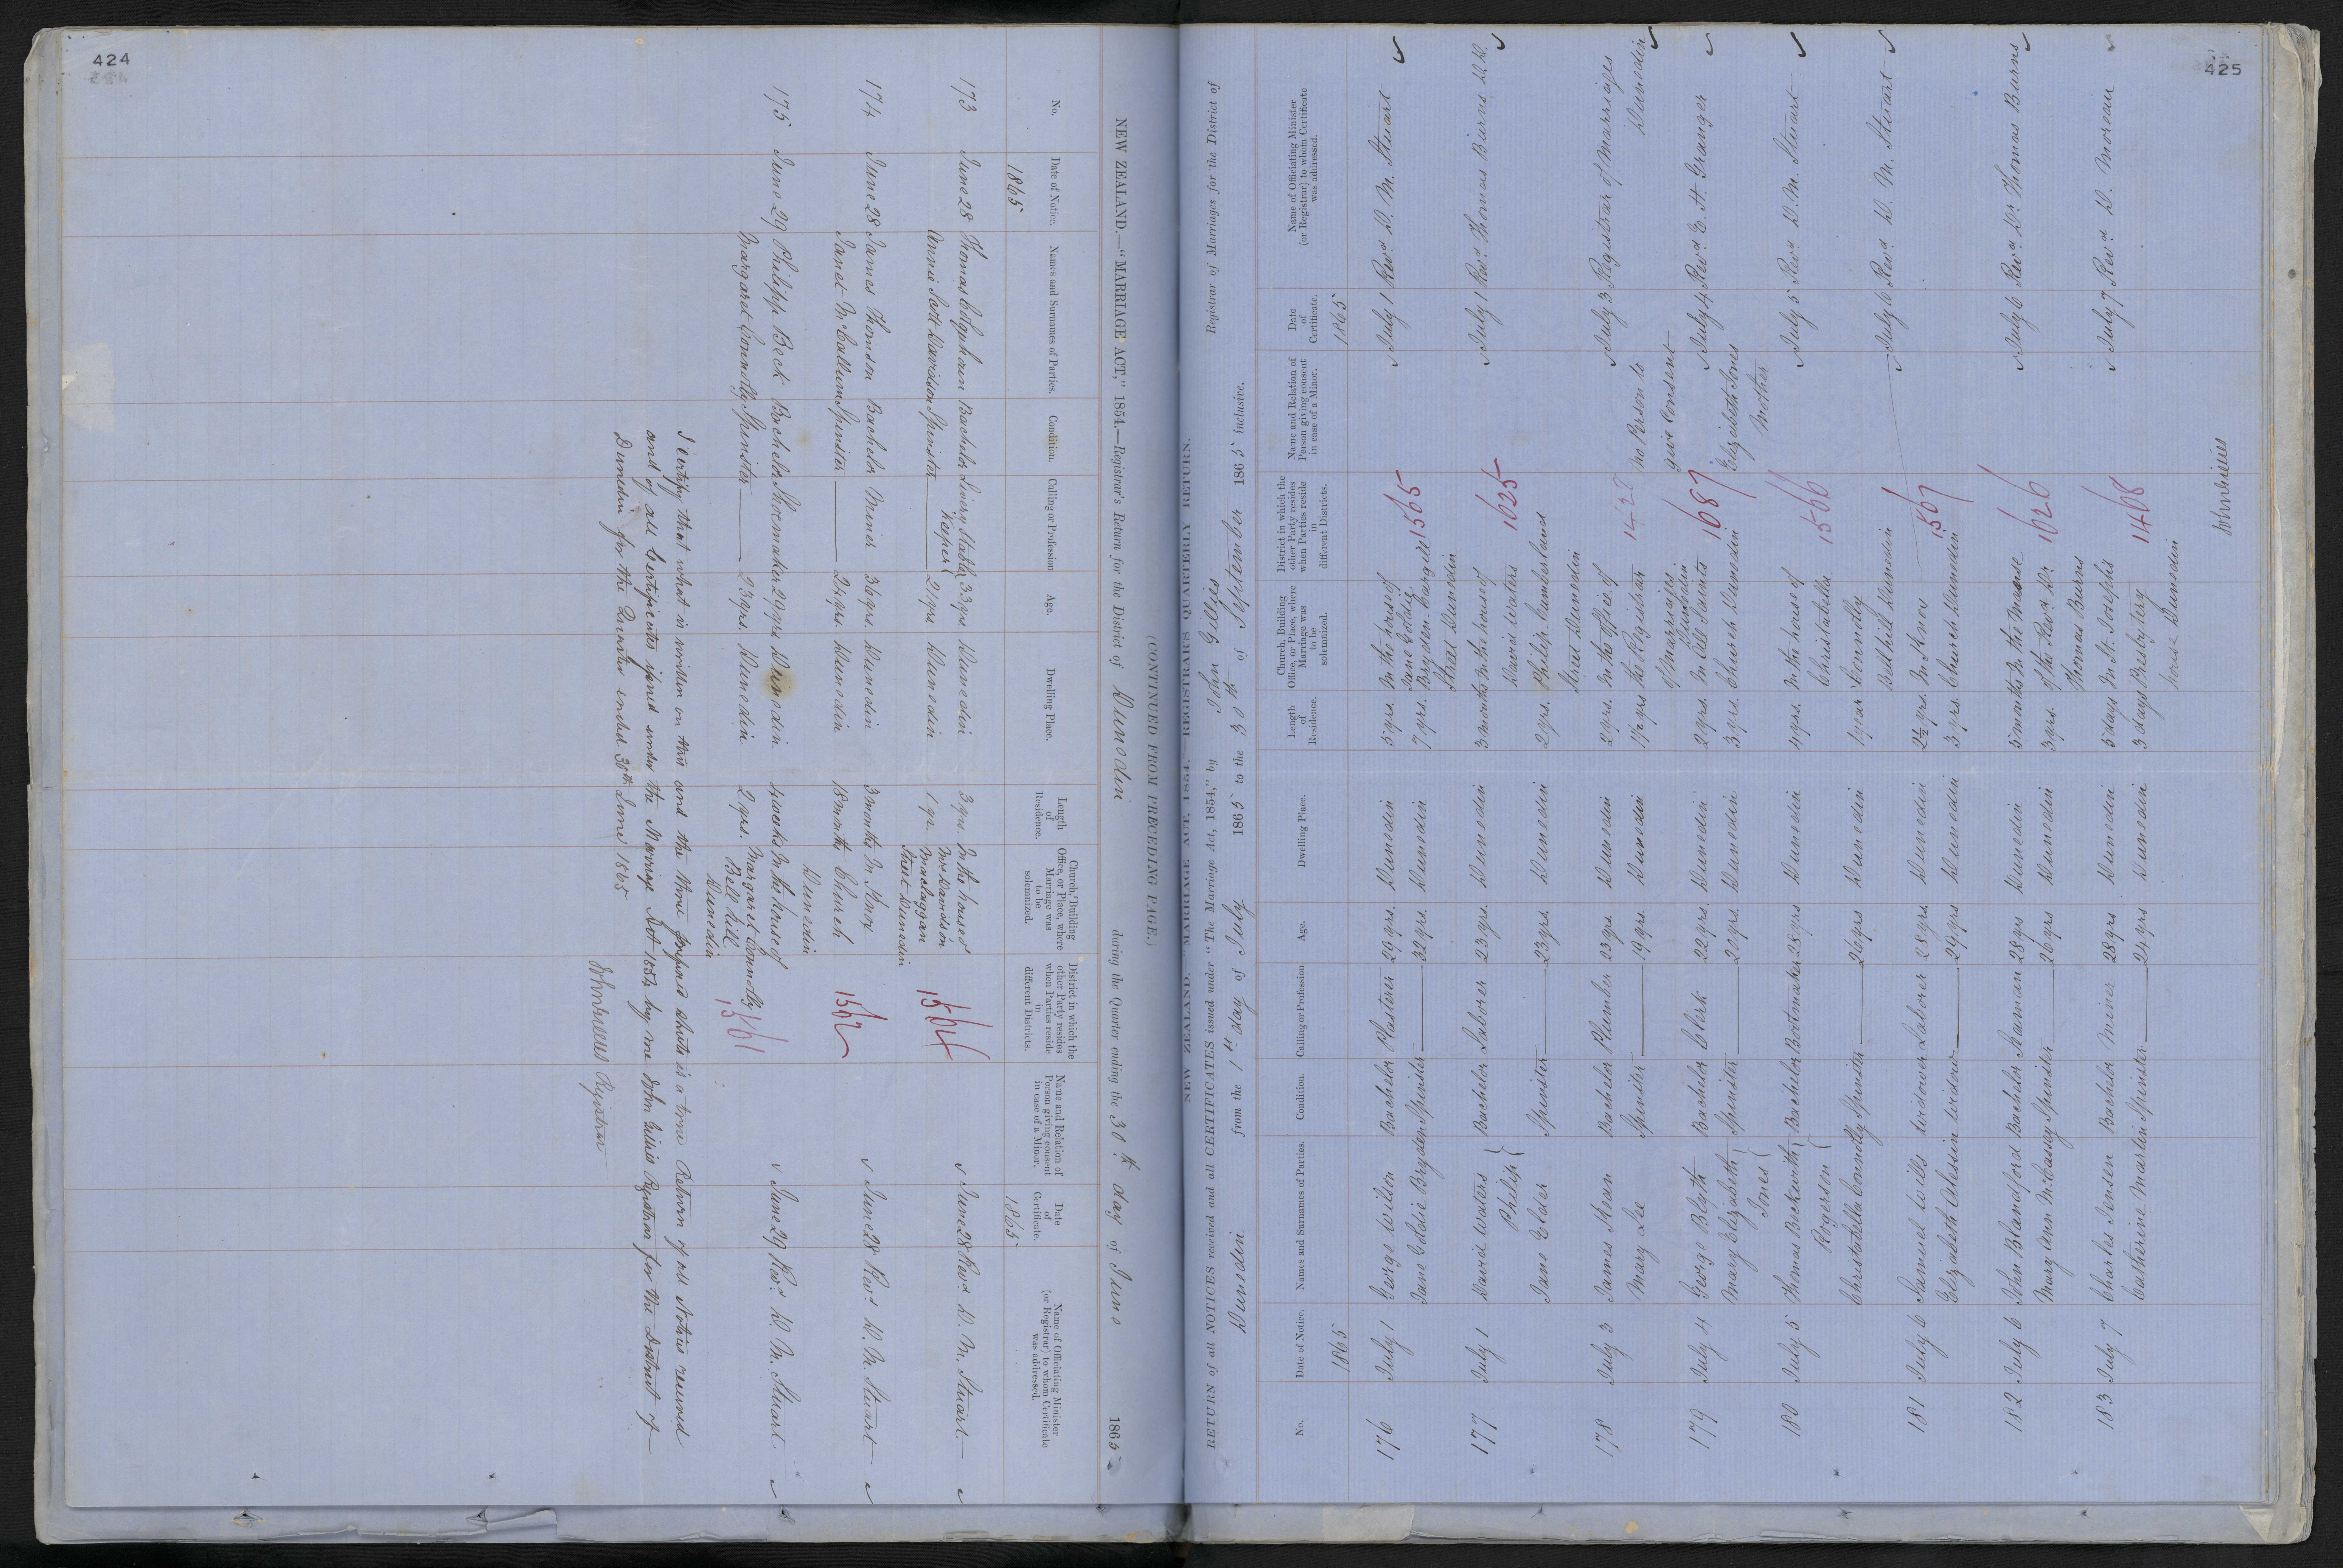 424
(CONTINUED FROM PRECEDING PAGE.)
NEW ZEALAND.—"MARRIAGE ACT," 1854.—Registrar's Return for the District of Dunedin during the Quarter ending the 30th day of June 1865
No. Date of Notice. Names and Surnames of Parties. Condition. Calling or Profession Age. Dwelling Place. Length of Residence. Church, Building Office, or Place, where Marriage was to be solemnized. District in which the other Party resides when Parties reside in different Districts. Name and Relation of Person giving consent in case of a Minor. Date of Certificate. Name of Officiating Minister (or Registrar) to whom Certificate was addressed.
1865 1865
173 June 28 Thomas Colquhoun Bachelor Livery Stable 33 yrs Dunedin 3 yrs. In the house of June 28 Revd. D. M. Stuart
Keeper Mrs Davidson
Annie Scott Davidson Spinster 21 yrs Dunedin 1 yr. Maclaggan
Street Dunedin
174 June 28 James Thomson Bachelor Miner 36 yrs. Dunedin 3 months In Knox 1562 June 28 Revd. D. M. Stuart
Janet McCallum Spinster 24 yrs. Dunedin 18 months Church
Dunedin
175 June 29 Philipp Beck Bachelor Shoemaker 29 yrs Dunedin 4 weeks In the house of June 29 Revd. D. M. Stuart
Margaret Connolly Spinster 23 yrs. Dunedin 2 yrs. Margaret Connolly 1561
Bell hill
Dunedin
I certify that what is written on this and the three prefixed sheets is a true Return of all Notices received
and of all Certificates issued under the Marriage Act 1854 by me John Gillies Registrar for the District of
Dunedin for the Quarter ended 30th June 1865
John Gillies Registrar
425
NEW ZEALAND.—MARRIAGE ACT, 1854.—REGISTRAR'S QUARTERLY RETURN.
RETURN of all NOTICES received and all CERTIFICATES issued under "The Marriage Act, 1854," by John Gillies Registrar of Marriages for the District of
Dunedin from the 1st day of July 1865 to the 30th of September 1865 inclusive.
No. Date of Notice. Names and Surnames of Parties. Condition. Calling or Profession Age. Dwelling Place. Length of Residence. Church, Building Office, or Place, where Marriage was to be solemnized. District in which the other Party resides when Parties reside in different Districts. Name and Relation of Person giving consent in case of a Minor. Date of Certificate. Name of Officiating Minister (or Registrar) to whom Certificate was addressed.
1865 1865
176 July 1 George Wilson Bachelor Plasterer 29 yrs. Dunedin 5 yrs. In the house of 1565 July 1 Revd. D. M. Stuart
Jane Goldie
Jane Goldie Bryden Spinster 32 yrs. Dunedin 7 yrs. Bryden Cargill
Street Dunedin
177 July 1 David Waters Bachelor Laborer 23 yrs. Dunedin 3 months In the house of 1625 July 1 Revd. Thomas Burns D.D.
Philip David Waters
Jane Elder Spinster 23 yrs. Dunedin 2 yrs. Philip Cumberland
Street Dunedin
178 July 3 James Kean Bachelor Plumber 23 yrs. Dunedin 2 yrs. In the Office of no Person to July 3 Registrar of Marriages
Mary Lee Spinster 19 yrs. Dunedin 1½ yrs the Registrar give Consent Dunedin
of Marriages
Dunedin
179 July 4 George Blyth Bachelor Clerk 22 yrs. Dunedin 2 yrs. In All Saints 1687 Elizabeth Jones July 4 Revd. E. H. Granger
Mary Elizabeth Spinster 20 yrs. Dunedin 3 yrs. Church Dunedin Mother
Jones
180 July 5 Thomas Beckwith Bachelor Bootmaker 28 yrs Dunedin 4 yrs. In the house of 1566 July 5 Revd. D. M. Stuart
Rogerson Christabella
Christabella Connolly Spinster 26 yrs Dunedin 1 year Connolly
Bell hill Dunedin
181 July 6 Samuel Wills Widower Laborer 28 yrs. Dunedin 2½ yrs. In Knox 1567 July 6 Revd. D. M. Stuart
Elizabeth Widow 29 yrs Dunedin 3 yrs. Church Dunedin
182 July 6 John Blandford Bachelor Seaman 28 yrs Dunedin 5 months In the Manse 1626 July 6 Revd. Dr. Thomas Burns
Mary Ann McCassey Spinster 26 yrs Dunedin 3 yrs. of the Revd. Dr.
Thomas Burns
183 July 7 Charles Jensen Bachelor Miner 28 yrs. Dunedin 5 days In St. Joseph's 1468 July 7 Revd. D. Moreau
Catherine Martin Spinster 24 yrs Dunedin 3 days Presbytery
house Dunedin
John Gillies